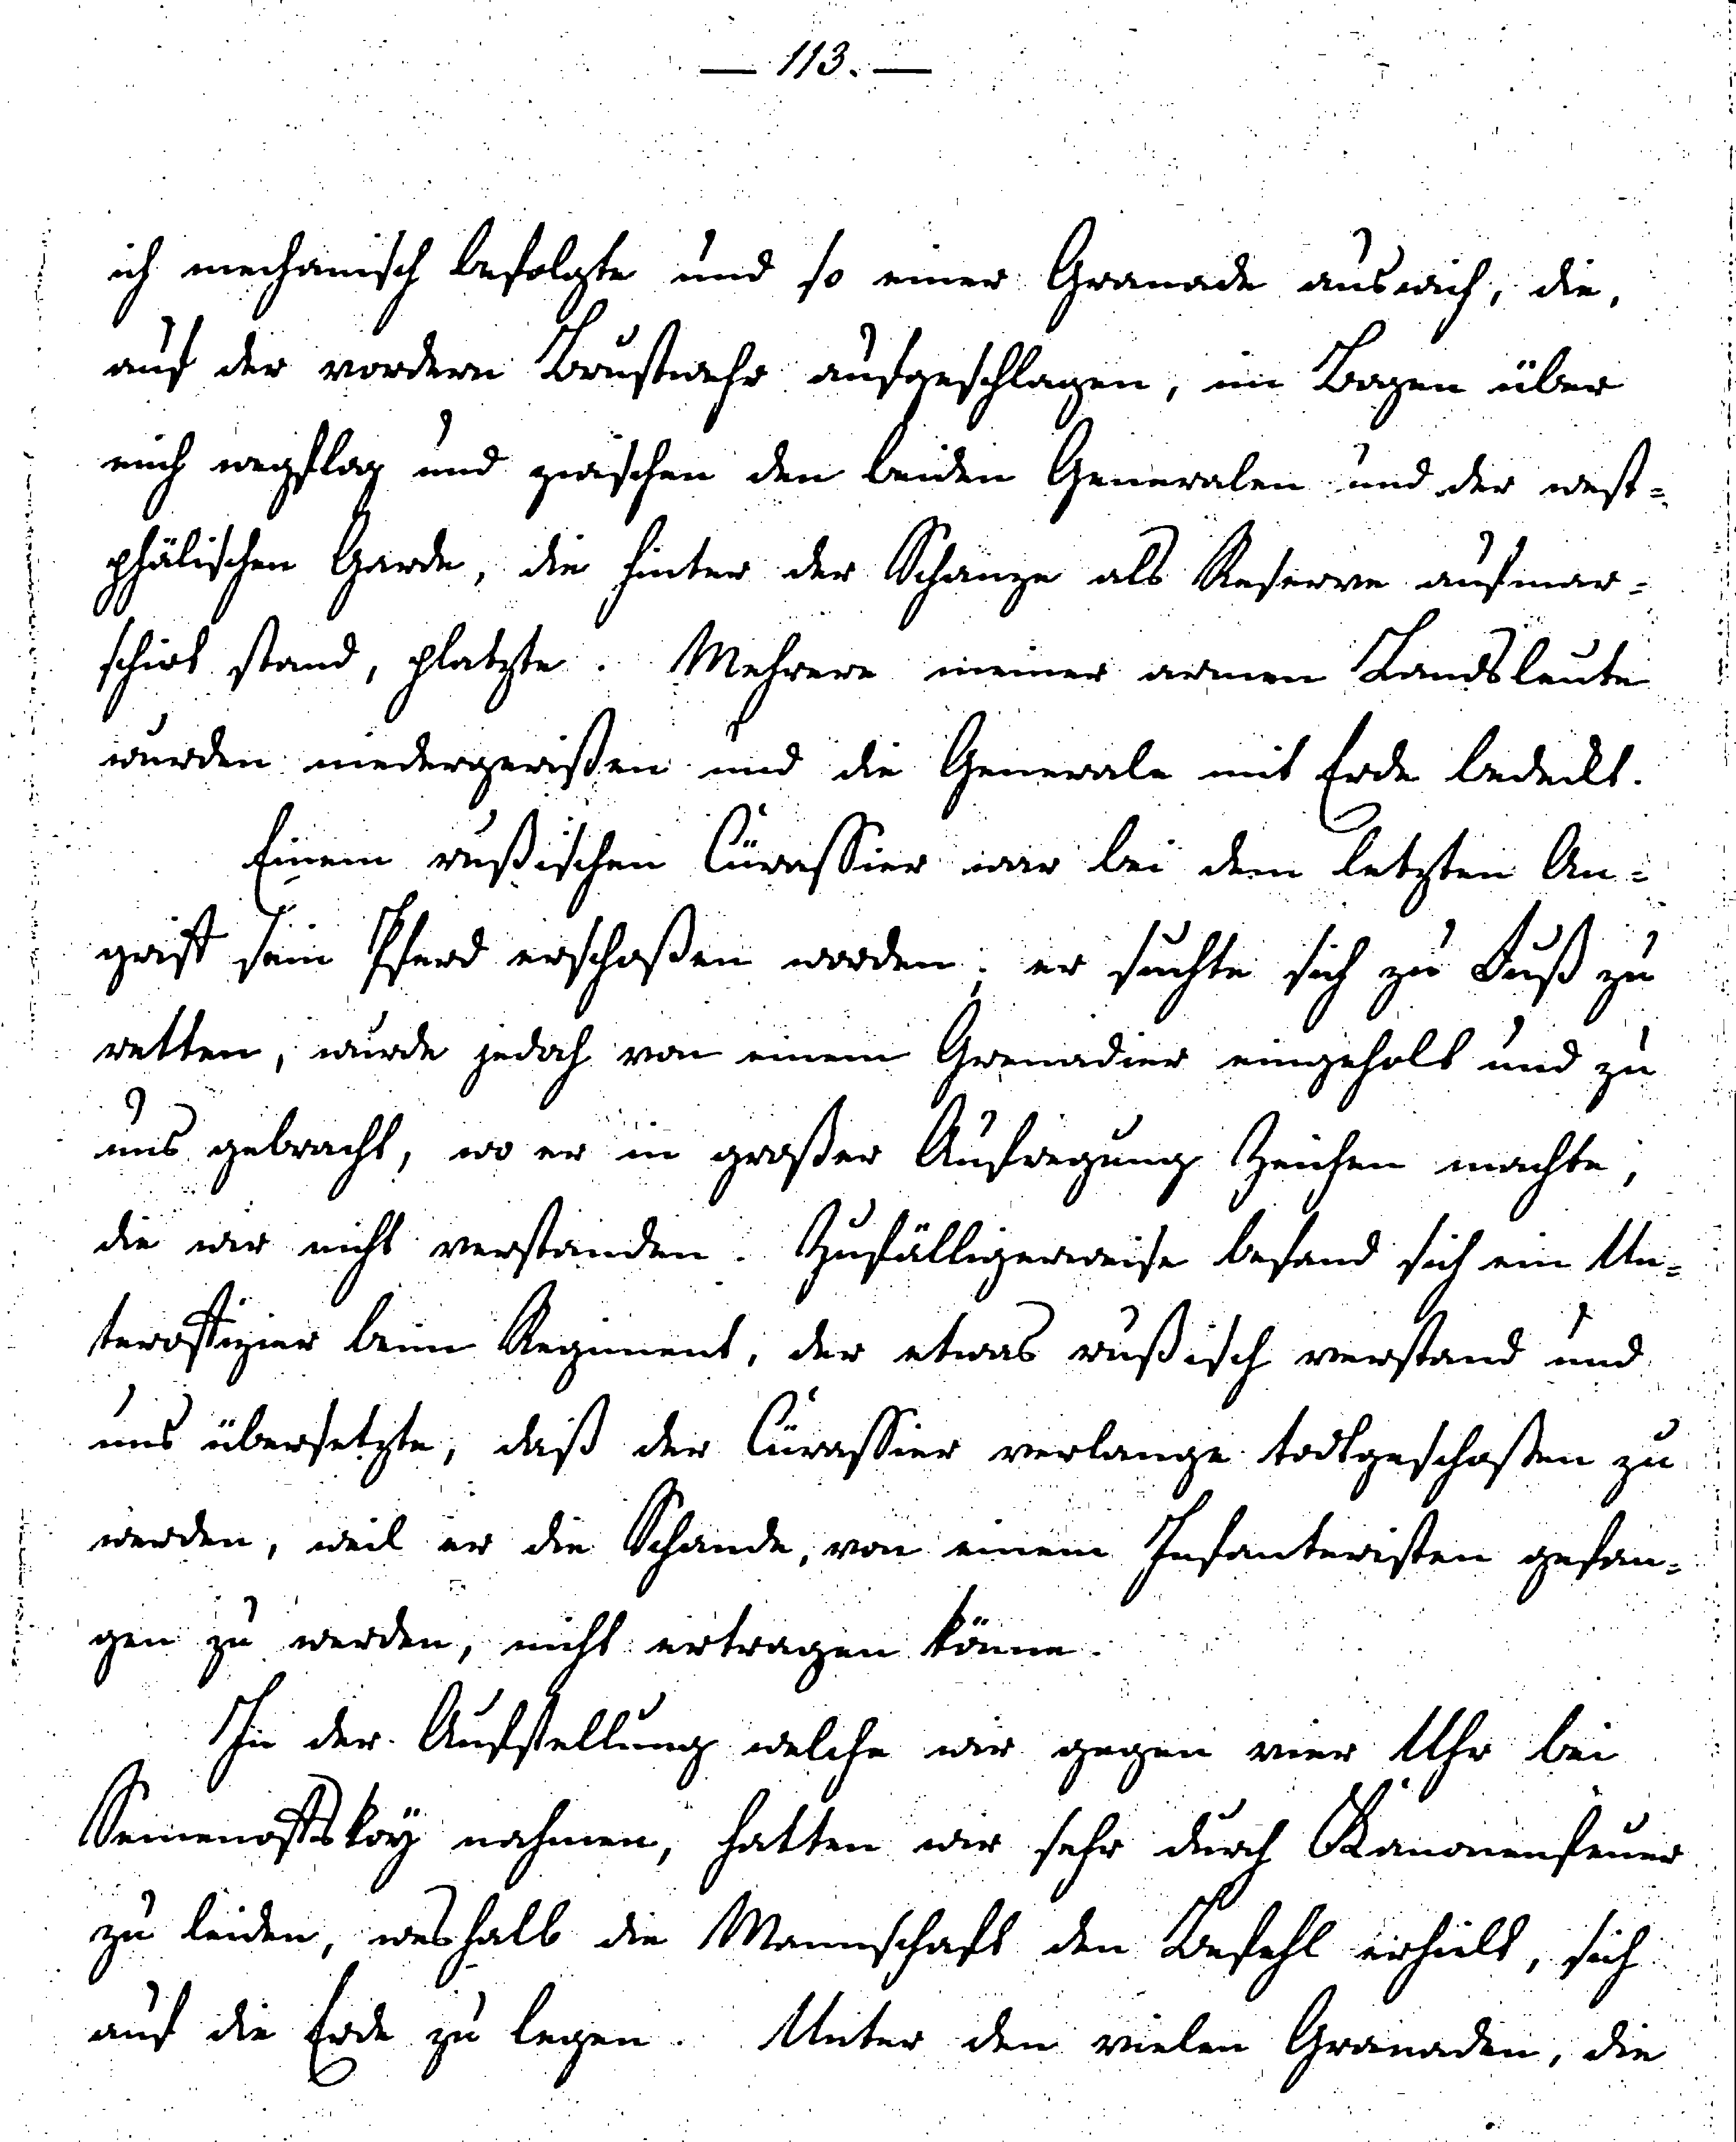 — 113. —
ich mechanisch befolgte und so einer Granade auswich, die,
auf der vordern Brustwehr aufgeschlagen, im Bogen über
mich wegflog und zwischen den beiden Generalen und der west-
phälischen Garde, die hinter der Schanze als Reserve aufmar-
schirt stand, platzte. Mehrere meiner armen Landsleute
wurden niedergerißen und die Generale mit Erde bedeckt.
Einem rußischen Cürassier war bei dem letzten An-
griff sein Pferd erschoßen worden; er suchte sich zu Fuß zu
retten, wurde jedoch von einem Grenadier eingeholt und zu
uns gebracht, wo er in großer Aufregung Zeichen machte,
die wir nicht verstanden. Zufälligerweise befand sich ein Un-
teroffizier beim Regiment, der etwas rußisch verstand und
uns übersetzte, daß der Cürassier verlange todtgeschoßen zu
werden, weil er die Schande, von einem Infanteristen gefan-
gen zu werden, nicht ertragen könne.
In der Aufstellung welche wir gegen vier Uhr bei
Semenoffskoÿ nahmen, hatten wir sehr durch Kanonenfeuer
zu leiden, weshalb die Mannschaft den Befehl erhielt, sich
auf die Erde zu legen. Unter den vielen Granaden, die